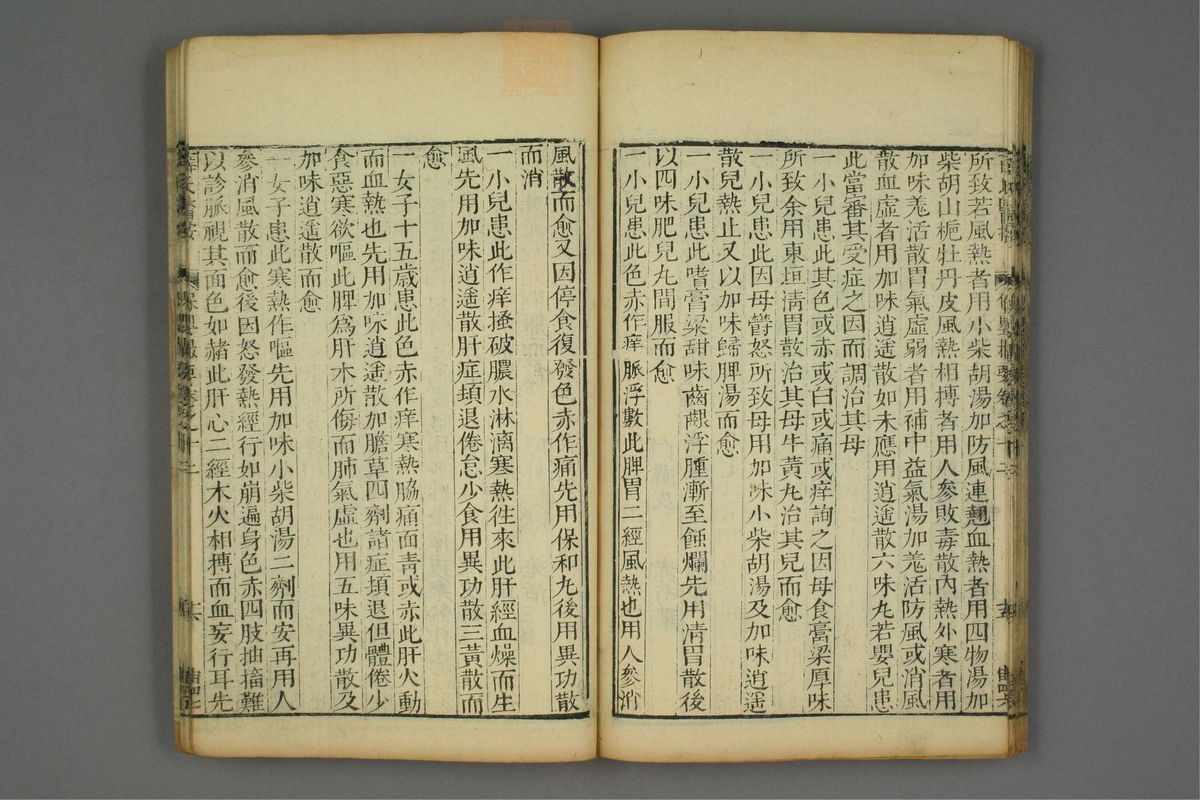 所致若風熱者用小柴胡湯加防風連翹血熱者用四物湯加
柴胡山梔牡丹皮風熱相摶者用人參敗毒散內熱外寒者用
加味羗活散胃氣虛弱者用補中益氣湯加羗活防風或消風
散血虛者用加味逍遥散如未應用逍遥散六味丸若嬰兒患
此當審其受症之因而調治其母
一小兒患此其色或赤或白或痛或痒詢之因母食膏梁厚味
所致余用東垣清胃散治其母牛黃丸治其兒而愈
一小兒患此因母欝怒所致母用加味小柴胡湯及加味逍遥
散兒熱止又以加味歸脾湯而愈
一小兒患此嗜膏梁甜味齒齦浮腫漸至蝕爛先用清胃散後
以四味肥兒丸間服而愈
一小兒患此色赤作痒脈浮數此脾胃二經風熱也用人參消
風散而愈又因停食復發色赤作痛先用保和丸後用異功散
而消
一小兒患此作痒搔破膿水淋漓寒熱徃來此肝經血燥而生
風先用加味逍遥散肝症頓退倦怠少食用異功散三黃散而
愈
一女子十五歲患此色赤作痒寒熱脇痛面青或赤此肝火動
而血熱也先用加味逍遥散加膽草四劑諸症頓退但體倦少
食惡寒欲嘔此脾爲肝木所傷而肺氣虛也用五味異功散及
加味逍遥散而愈
一女子患此寒熱作嘔先用加味小柴胡湯二劑而安再用人
參消風散而愈後因怒發熱經行如崩遍身色赤四肢抽搐難
以診脈視其面色如赭此肝心二經木火相摶而血妄行耳先
薛氏醫按 保嬰撮要卷之十二